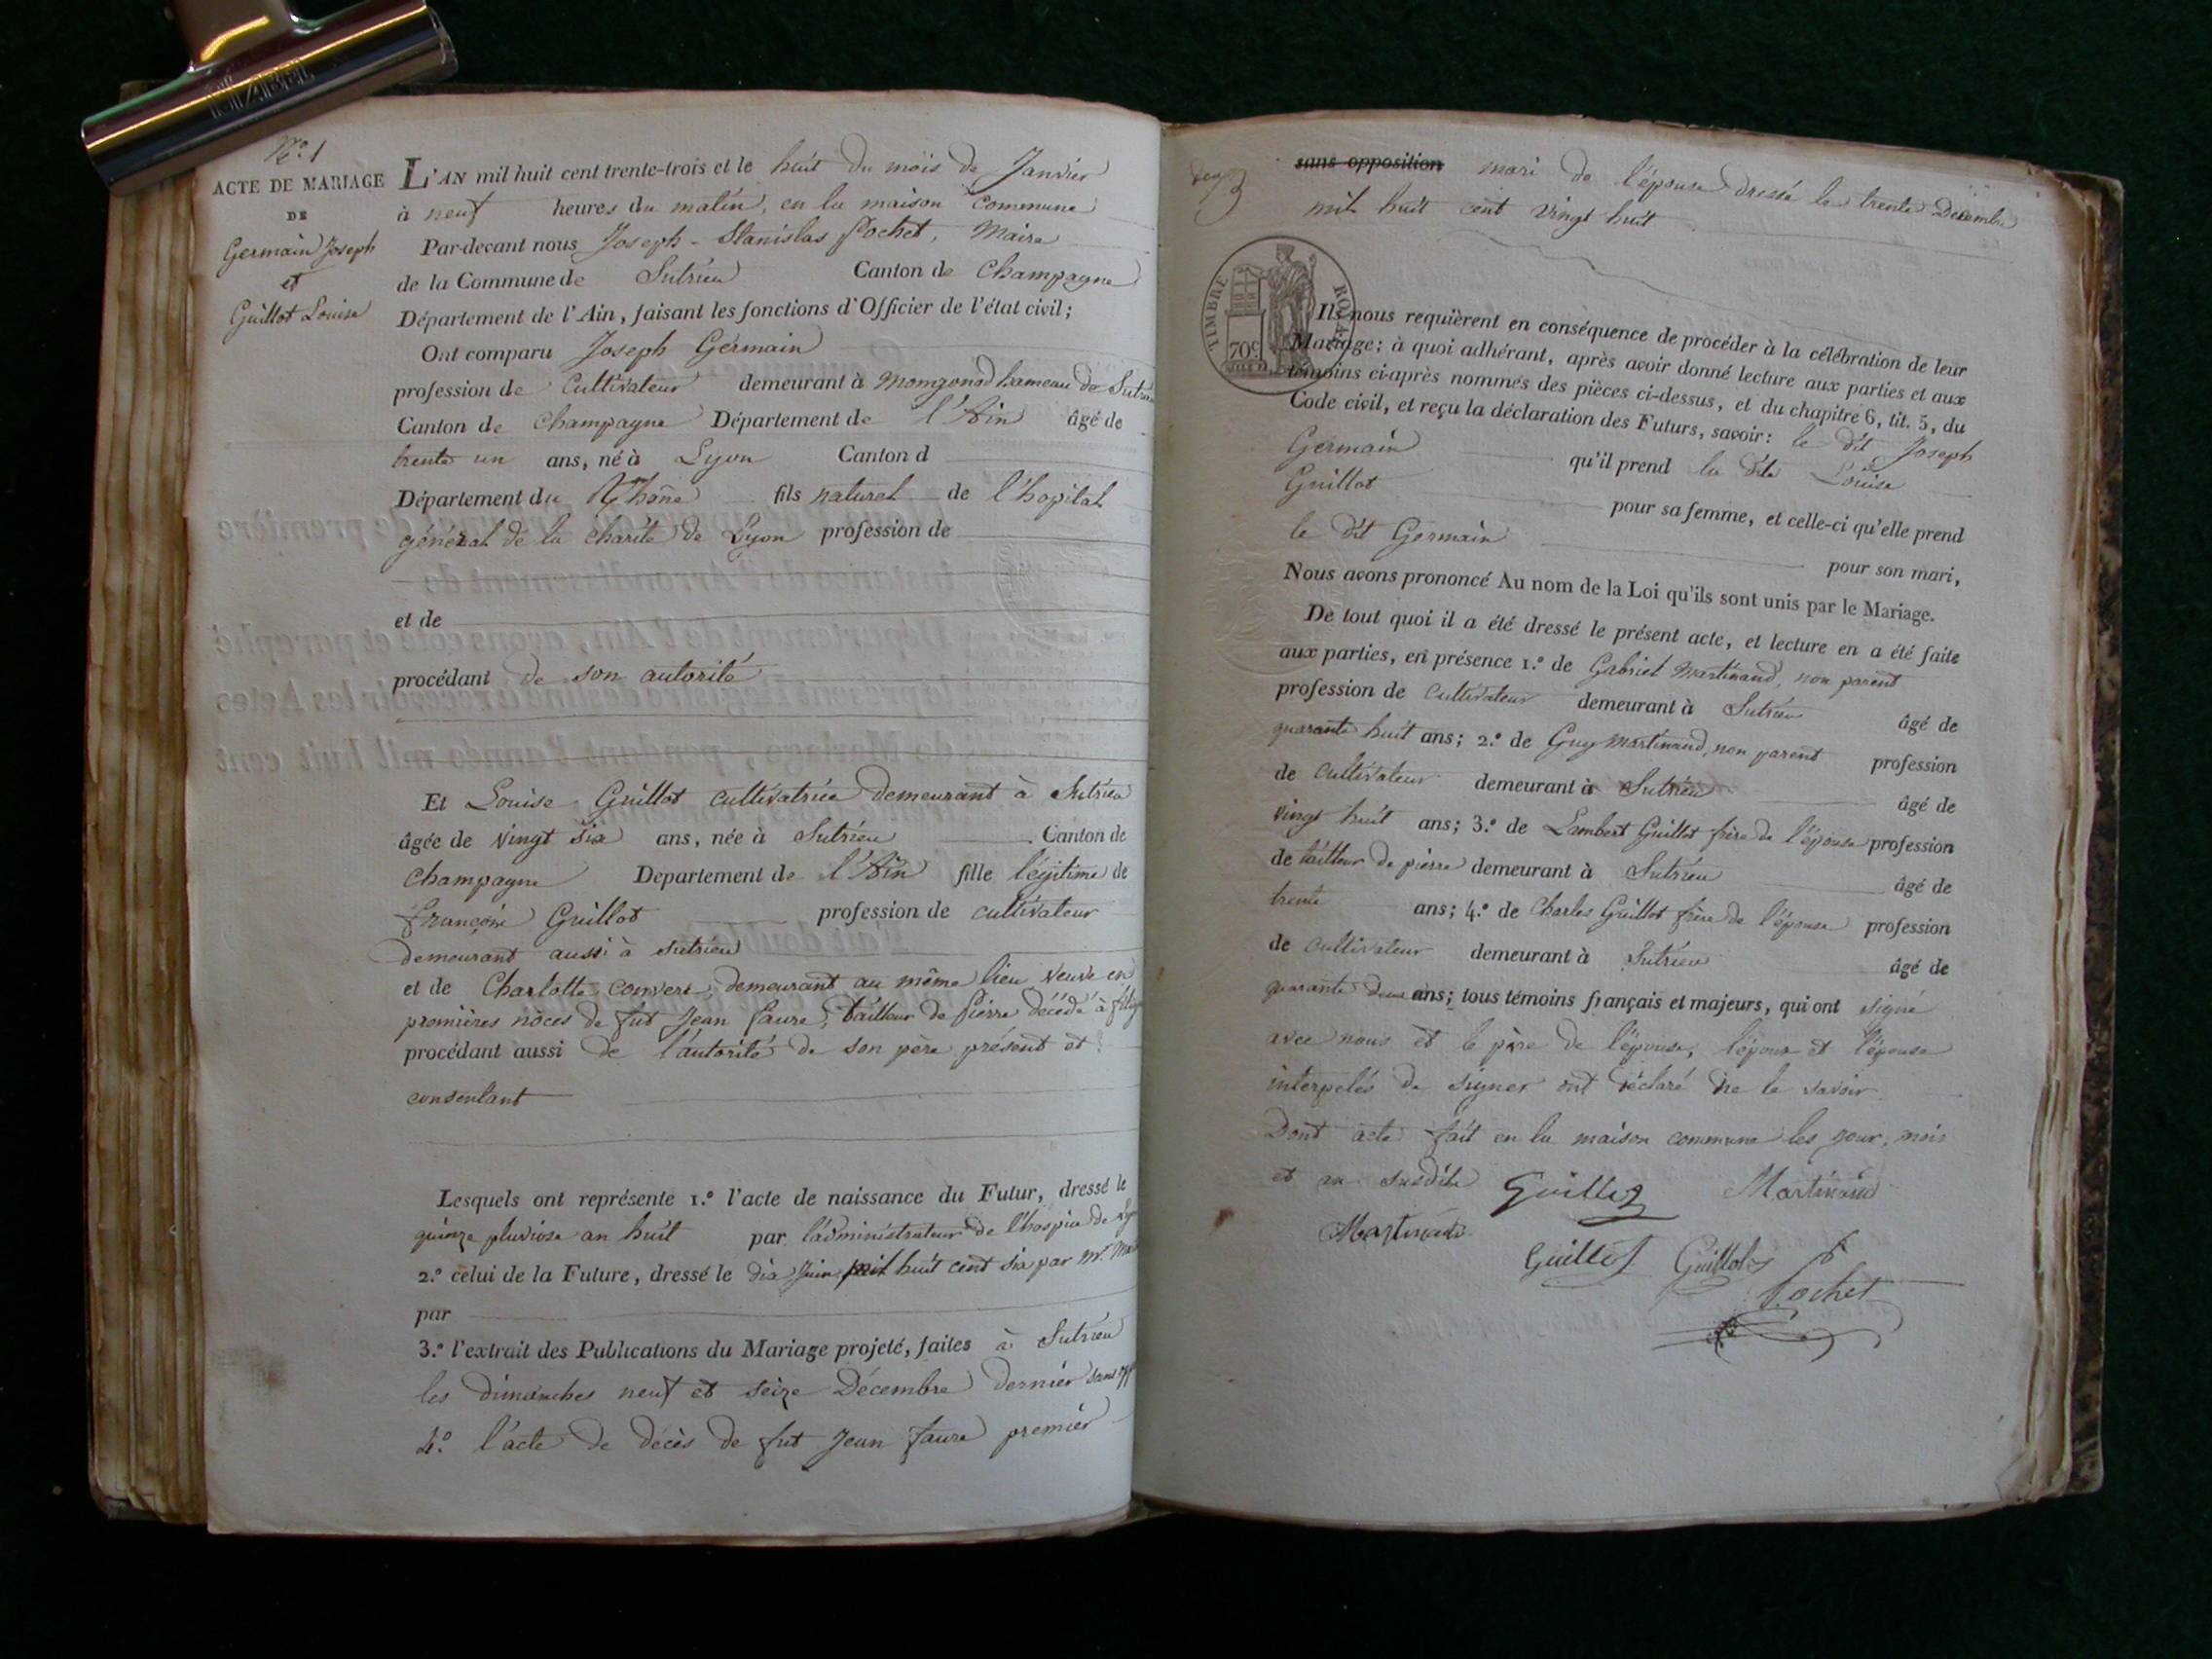 N.º 1
ACTE DE MARIAGE
DE
Germain Joseph
et
Guillot Louise
L'AN mil huit cent trente-trois et le huit du mois de Janvier
à neuf heures du matin, en la maison commune
Par-devant nous Joseph-Stanislas Pochet, Maire
de la Commune de Sutrieu Canton de Champagne
Département de l'Ain, faisant les fonctions d'Officier de l'état civil;
Ont comparu Joseph Germain
profession de Cultivateur demeurant à Momgonod hameau de Sutrieu
Canton de Champagne Département de l'Ain âgé de
trente un ans, né à Lyon Canton d
Département du Rhône fils naturel de l'hopital
général de la charité de Lyon profession de
et de
procédant de son autorité
Et Louise Guillot cultivatrice demeurant à Sutrieu
âgée de vingt six ans, née à Sutrieu Canton de
Champagne Departement de l'Ain fille légitime de
françois Guillot profession de cultivateur
demeurant aussi à Sutrieu
et de Charlotte convert, demeurant au même lieu veuve en
premières nôces de fut Jean faure, tailleur de pierre décédé à
procédant aussi de l'autorité de son père présent et
consentant
Lesquels ont représente 1.º l'acte de naissance du Futur, dressé le
quinze pluviose an huit par l'administrateur de l'hospice de Lyon
2.º celui de la Future, dressé le dix Juin mil huit cent six par Mr.
par
3.º l'extrait des Publications du Mariage projeté, faites à Sutrieu
les dimanches neuf et seize Décembre dernier sans
4.º l'acte de décès de fut Jean faure premier
sans opposition mari de l'épouse dressé le trente Decembre
mil huit cent vingt huit
TIMBRE ROYAL
70c
Ils nous requièrent en conséquence de procéder à la célébration de leur
Mariage; à quoi adhérant, après avoir donné lecture aux parties et aux
témoins ci-après nommés des pièces ci-dessus, et du chapitre 6, tit. 5, du
Code civil, et reçu la déclaration des Futurs, savoir: le dit Joseph
Germain qu'il prend la dite Louise
Guillot pour sa femme, et celle-ci qu'elle prend
le dit Germain pour son mari,
Nous avons prononcé Au nom de la Loi qu'ils sont unis par le Mariage.
De tout quoi il a été dressé le présent acte, et lecture en a été faite
aux parties, en présence 1.º de Gabriel Martinand, non parent
profession de cultivateur demeurant à Sutrieu âgé de
quarante huit ans; 2.º de Guy Martinand, non parent profession
de cultivateur demeurant à Sutrieu âgé de
vingt huit ans; 3.º de Lambert Guillot frère de l'épouse profession
de tailleur de pierre demeurant à Sutrieu âgé de
trente ans; 4.º de Charles Guillot frère de l'épouse profession
de cultivateur demeurant à Sutrieu âgé de
quarante deux ans; tous témoins français et majeurs, qui ont signé
avec nous et le père de l'épouse, l'époux et l'épouse
interpelés de signer ont déclaré ne le savoir
Dont acte fait en la maison commune les jour, mois
et an susdits Guillot Martinand
Martinand
Guillot Guillot
Pochet